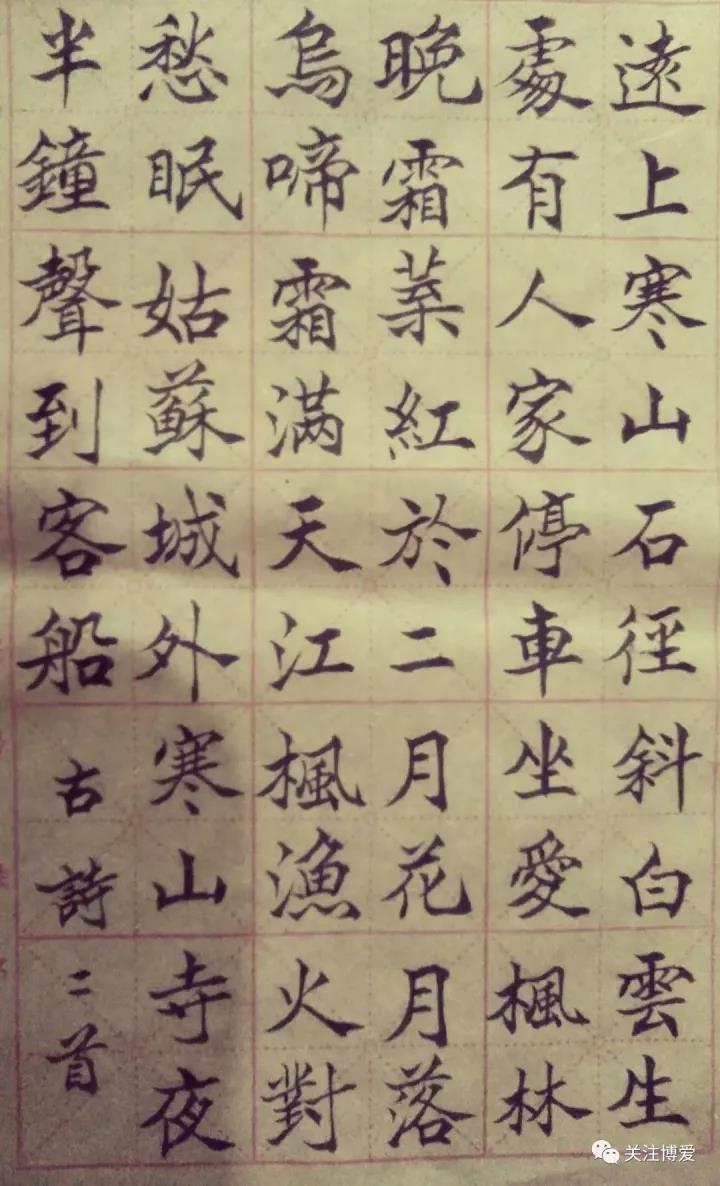 遠上寒山石徑斜白雲生
處有人家停車坐愛楓林
晚霜葉紅於二月花月落
烏啼霜滿天江楓漁火對
愁眠姑蘇城外寒山寺夜
半鐘聲到客船古詩二首
关注博爱